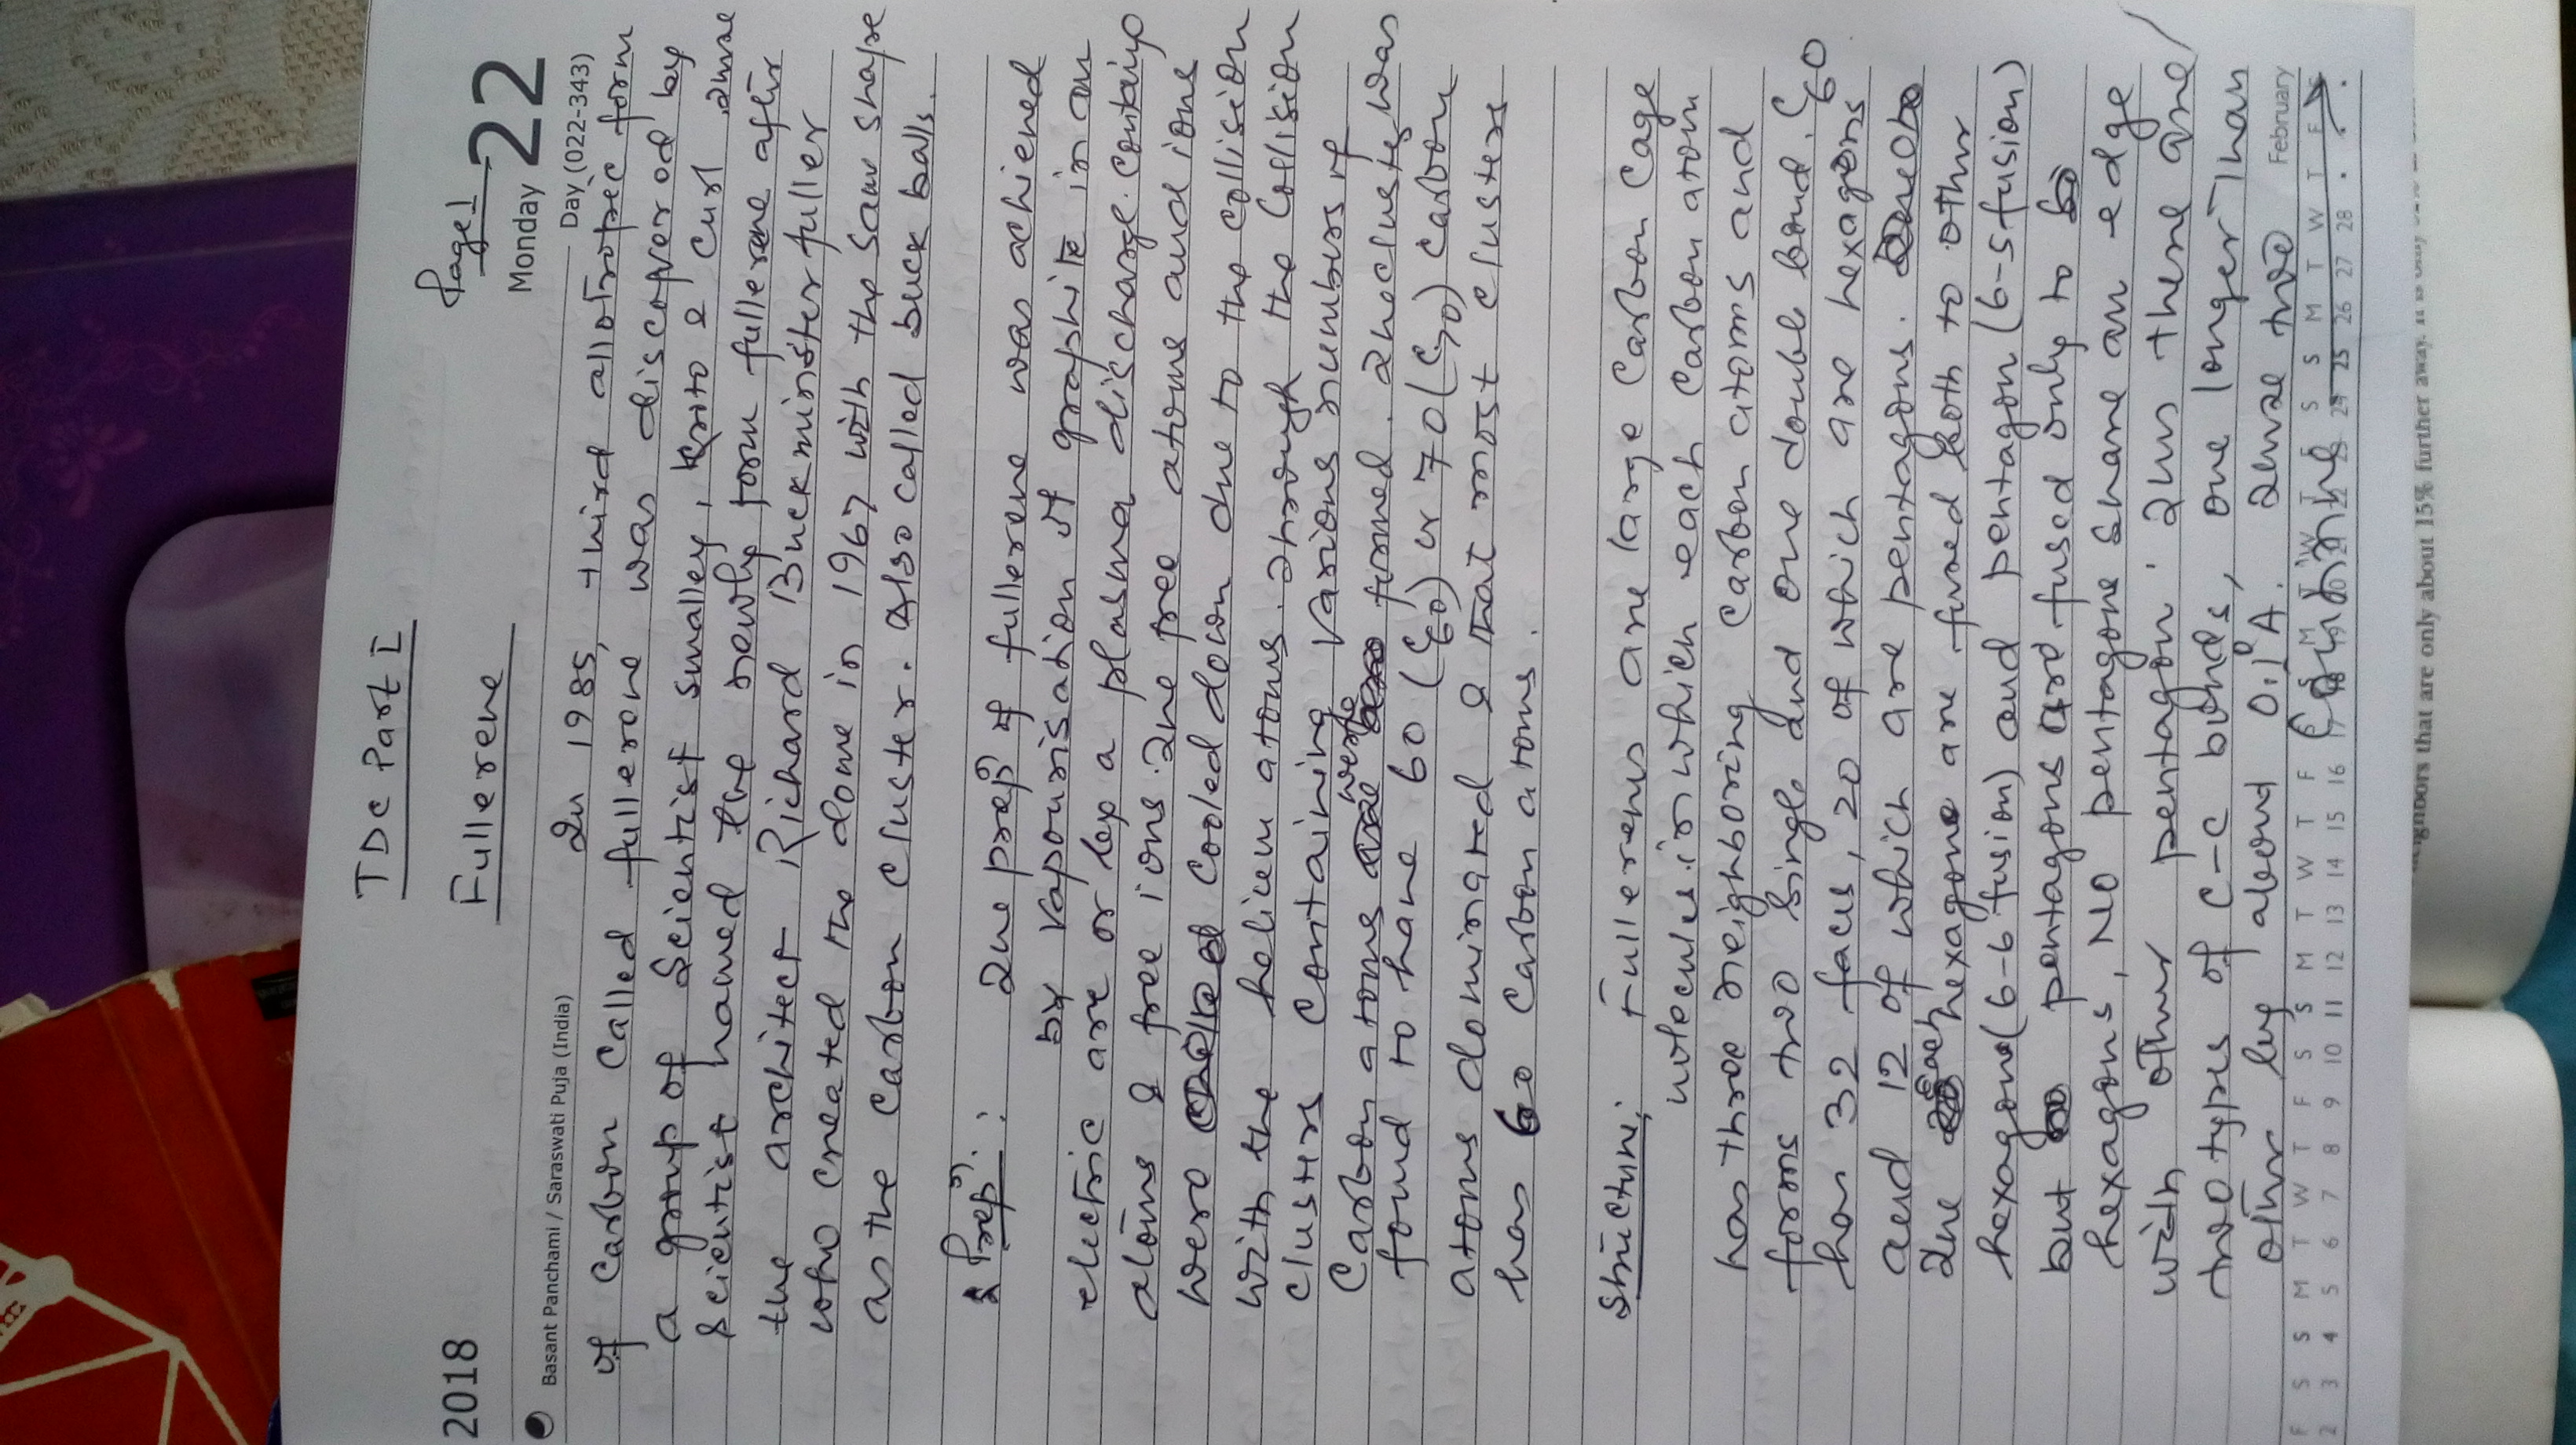 TDC Part I
Page 1
2018
Fullerene
Monday 22
Basant Panchami / Saraswati Puja (India)
Day (022-343)
In 1985, third allotropic form
of Carbon called fullerene was discovered by
a group of Scientist smalley, kroto & Curl. These
Scientist named the newly form fullerene after
the architect Richard Buckminster fuller
who created the dome in 1967 with the same shape
as the carbon cluster. Also called buck balls.
2 Prepn: The prepn of fullerene was achieved
by vapourisation of graphite in an
electric arc or by a plasma discharge. containing
atoms & free ions. The free atoms and ions
were cooled down due to the collision
with the helium atoms. Through the collision
clusters containing various numbers of
Carbon atoms were formed. The cluster was
found to have 60 (C60) or 70 (C70) carbon
atoms dominated & that most clusters
has 60 Carbon atoms.
Structure: Fullerens are large Carbon Cage
molecules. in which each carbon atom
has three neighboring carbon atoms and
forms two single and one double bond. C60
has 32 faces, 20 of which are hexagons
and 12 of which are pentagons.
The each hexagons are fused both to other
hexagons (6-6 fusion) and pentagon (6-5 fusion)
but pentagons are fused only to
hexagons, No pentagons share an edge
with other pentagon. Thus there are
two types of C-C bonds, one longer than
other by about 0.1°A. These two
February
F S S M T W T F S S M T W T F S S M T W T F S S M T W T F
2 3 4 5 6 7 8 9 10 11 12 13 14 15 16 17 18 19 20 21 22 23 24 25 26 27 28
neighbors that are only about 15% further away.